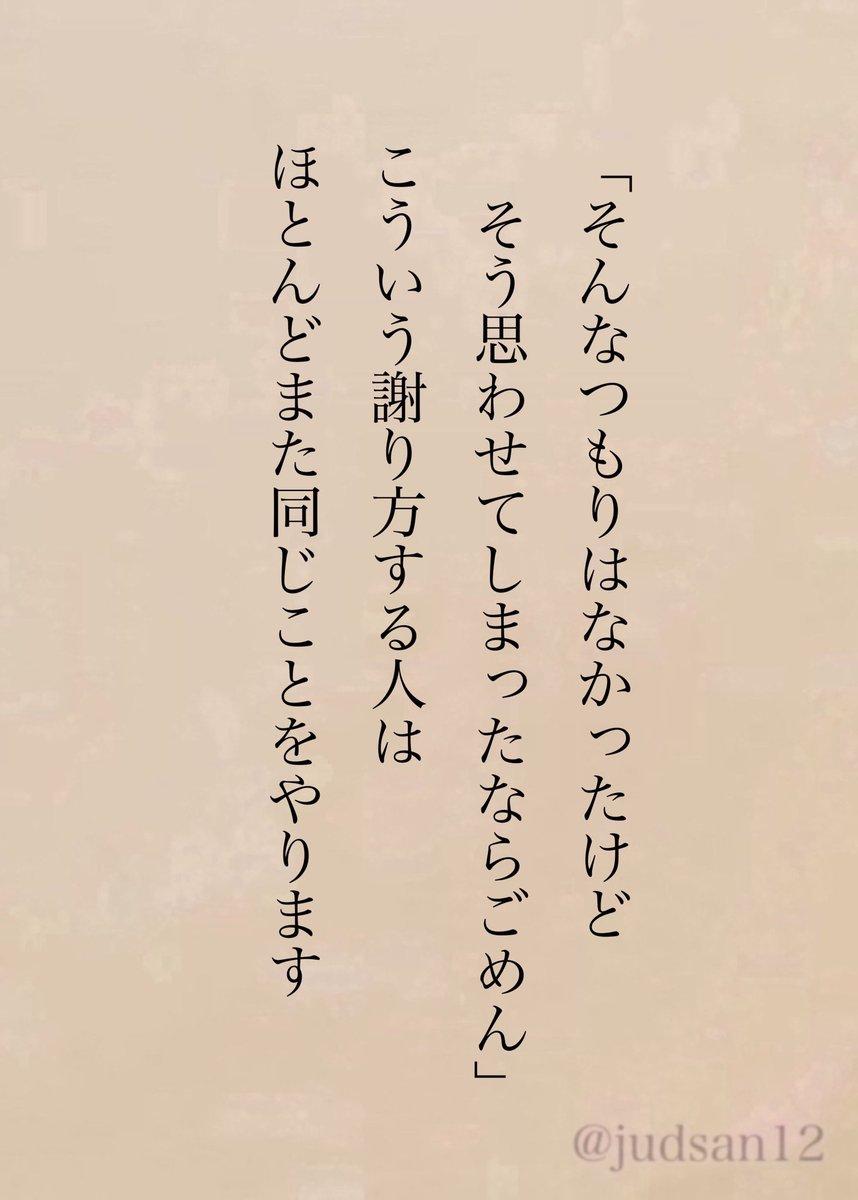 「そんなつもりはなかったけど
そう思わせてしまったならごめん」
こういう謝り方する人は
ほとんどまた同じことをやります
@judsan12